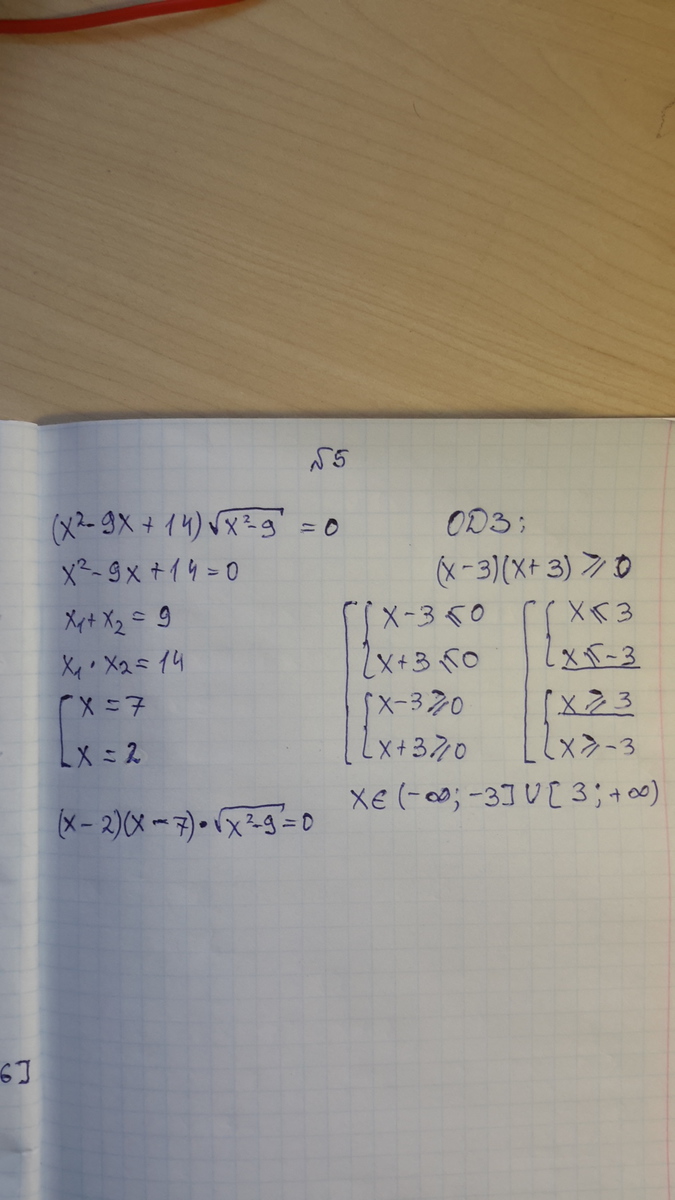 №5
(x²-9x+14)√(x²-9) = 0
x²-9x+14=0
x₁+x₂=9
x₁·x₂=14
[x=7
[x=2
(x-2)(x-7)·√(x²-9)=0
ОДЗ:
(x-3)(x+3)⩾0
[{x-3⩽0 [{x⩽3
{x+3⩽0 {x⩽-3
{x-3⩾0 {x⩾3
{x+3⩾0 {x⩾-3
x∈(-∞;-3]∪[3;+∞)
6]